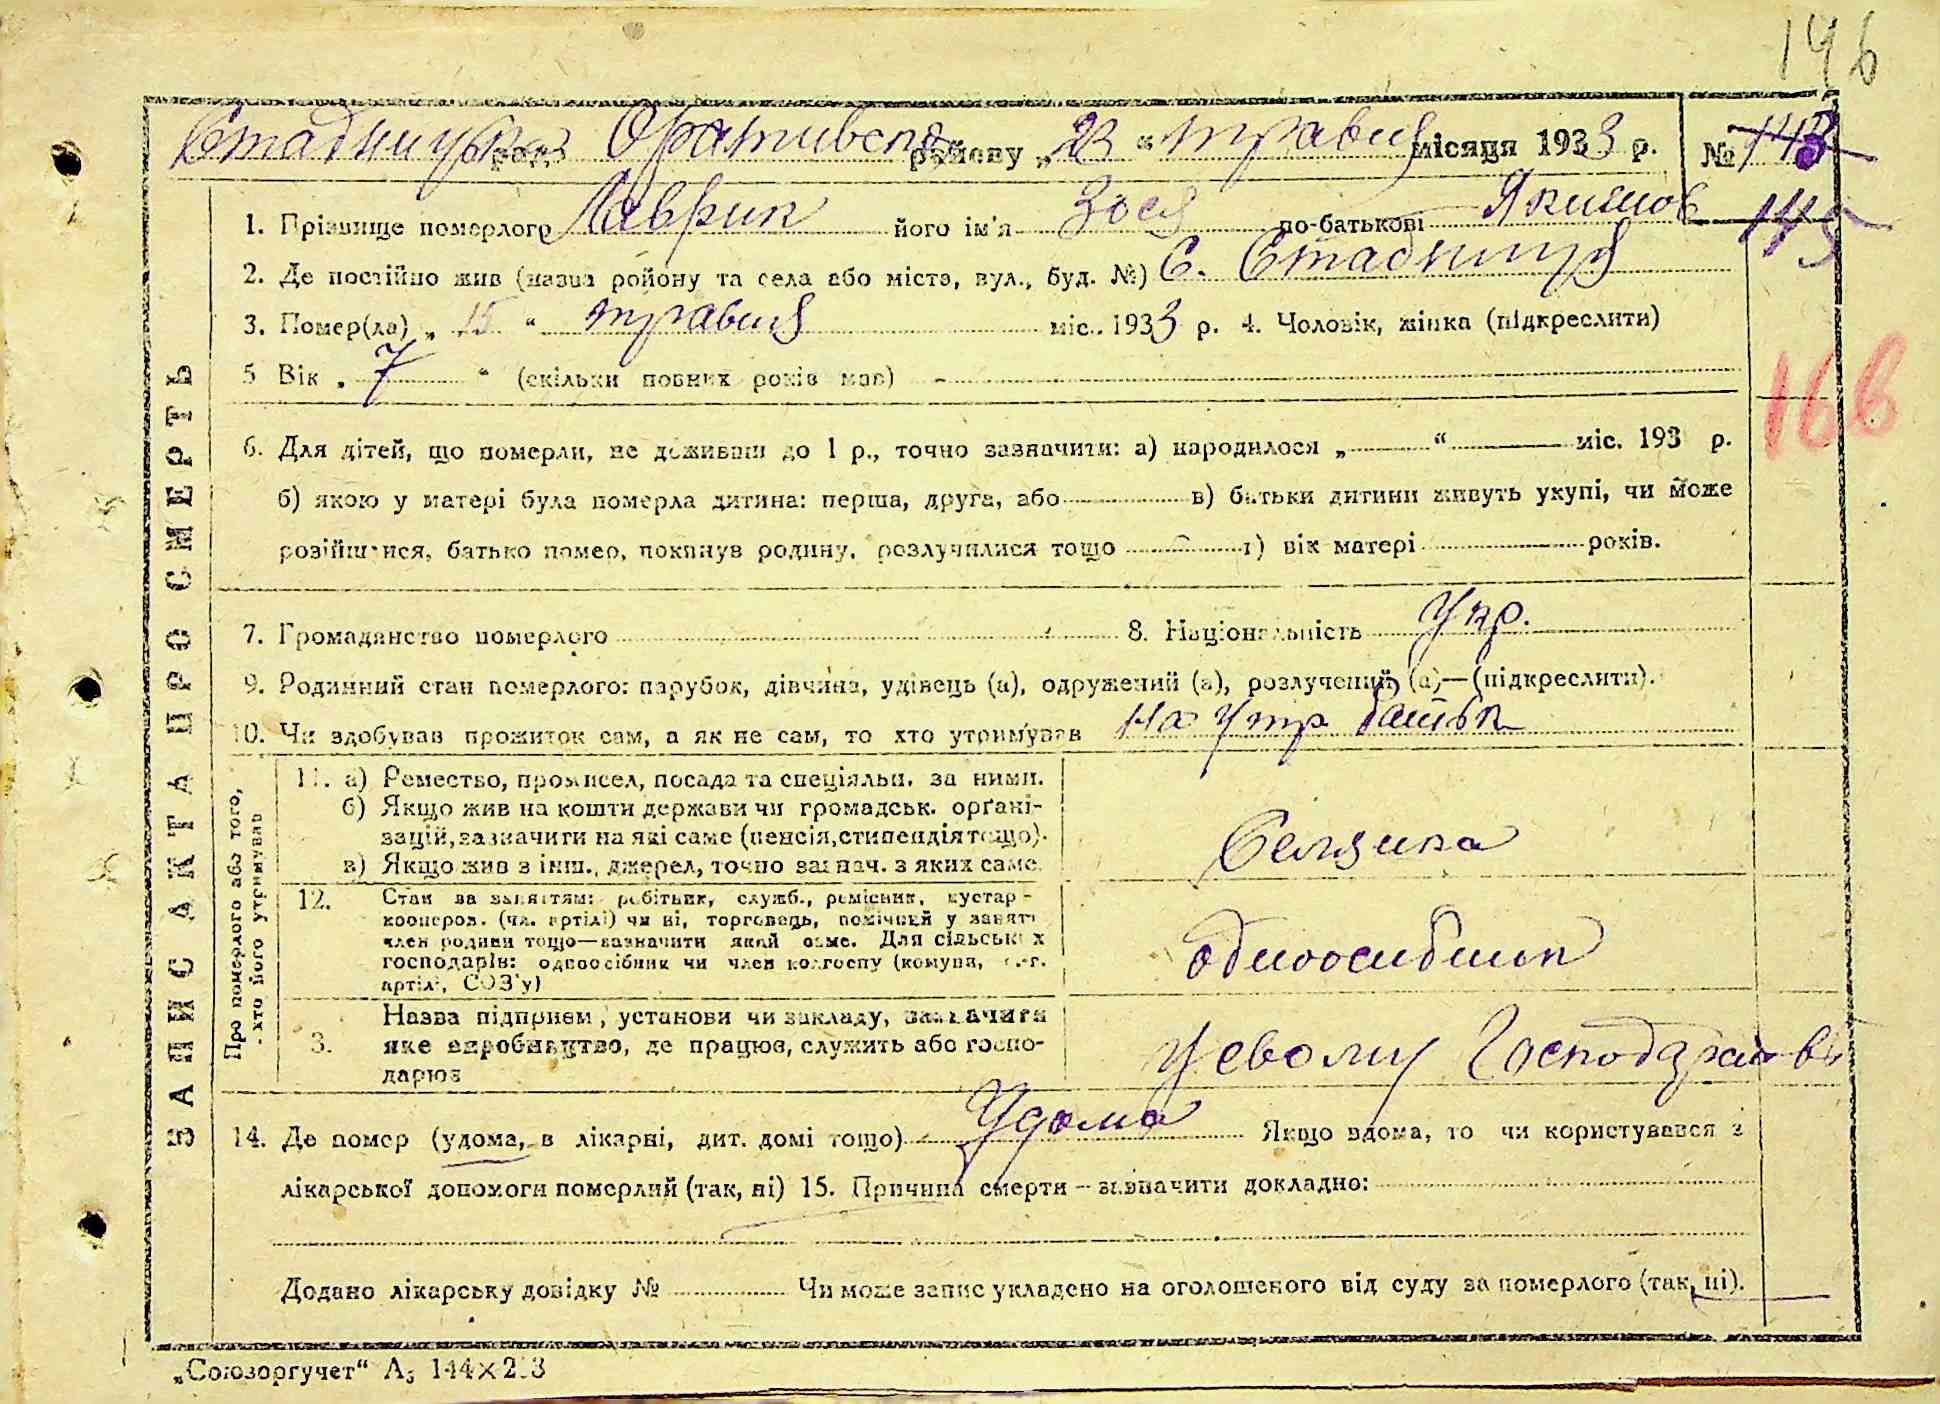 146
Стадницька рада Оратівського району „23“ травня місяця 1933 р. № 143
1. Прізвище померлого Лаврик його ім'я Зося по-батькові Якимов 145
2. Де постійно жив (назва ройону та села або міста, вул., буд. №) С. Стадниця
3. Помер(ла) „15“ травня міс. 1933 р. 4. Чоловік, жінка (підкреслити)
5 Вік „7“ (скільки повних років мав)
166
6. Для дітей, що померли, не доживши до 1 р., точно зазначити: а) народилося „ “ міс. 193 р.
б) якою у матері була померла дитина: перша, друга, або в) батьки дитини живуть укупі, чи може
розійшлися, батько помер, покинув родину, розлучилися тощо г) вік матері років.
7. Громадянство померлого 8. Національність Укр.
9. Родинний стан померлого: парубок, дівчина, удівець (а), одружений (а), розлучений (а)—(підкреслити).
10. Чи здобував прожиток сам, а як не сам, то хто утримував на утр батьк
ЗАПИС АКТА ПРО СМЕРТЬ
Про померлого або того, хто його утримував
11. а) Ремество, промисел, посада та спеціяльн. за ними.
б) Якщо жив на кошти держави чи громадськ. орґані-
зацій, зазначити на які саме (пенсія, стипендія тощо).
в) Якщо жив з інш., джерел, точно зазнач. з яких саме.
Селянка
12. Стан за заняттям: робітник, служб., ремісник, кустар -
кооперов. (чл. артілі) чи ні, торговець, помічний у занятт
член родини тощо—зазначити який саме. Для сільських
господарів: одноосібник чи член колгоспу (комуни, с.-г.
артілі, СОЗ'у)
одноосибник
3. Назва підприєм, установи чи закладу, зазначити
яке виробництво, де працює, служить або госпо-
дарює
у своему Господарстві
14. Де помер (удома, в лікарні, дит. домі тощо) Удома Якщо вдома, то чи користувався з
лікарської допомоги померлий (так, ні) 15. Причина смерти – зазначити докладно:
Додано лікарську довідку № Чи може запис укладено на оголошеного від суду за померлого (так, ні).
„Союзоргучет“ А5 144×203